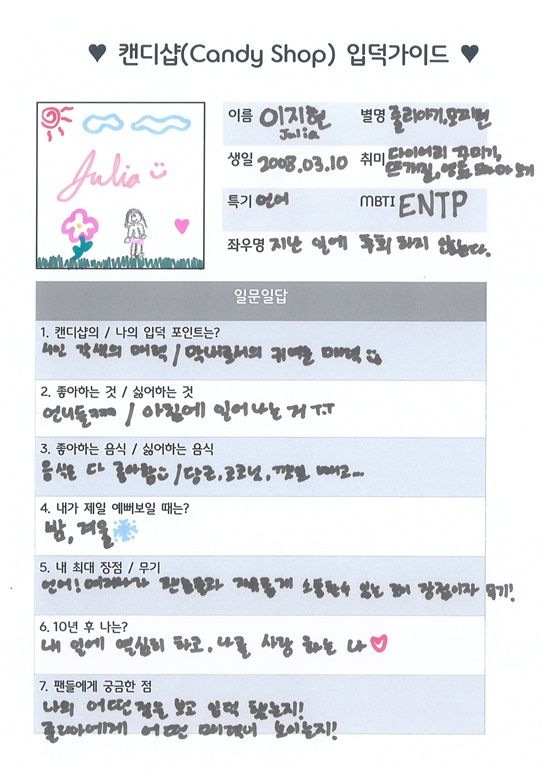 ♥ 캔디샵(Candy Shop) 입덕가이드 ♥
Julia
이름 이지현
Julia
별명 줄리아기,
생일 2008.03.10
취미 다이어리 꾸미기,
뜨개질, 영화 보기
특기 언어
MBTI ENTP
좌우명 지난 일에 후회 하지 않는다.
일문일답
1. 캔디샵의 / 나의 입덕 포인트는?
4인 각색의 매력 / 막내로서의 귀여운 매력
2. 좋아하는 것 / 싫어하는 것
언니들ㅋㅋ / 아침에 일어나는 거 T.T
3. 좋아하는 음식 / 싫어하는 음식
음식은 다 좋아함 / 당근, 깻잎 빼고...
4. 내가 제일 예뻐보일 때는?
밤, 겨울
5. 내 최대 장점 / 무기
언어! 여러나라 팬분들과 자유롭게 소통할수 있는 것이 장점이자 무기!
6. 10년 후 나는?
내 일에 열심히 하고, 나를 사랑 하는 나
7. 팬들에게 궁금한 점
나의 어떤 점을 보고 입덕 했는지!
줄리아에게 어떤 매력이 보이는지!